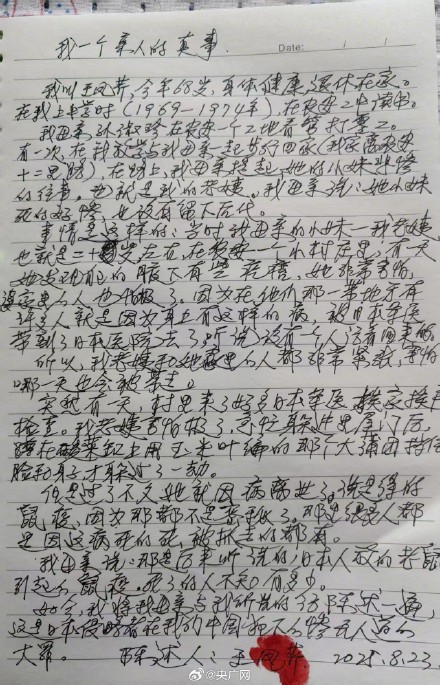 我一个亲人的真事.
Date:    /    /
我叫王凤芹,今年68岁,身体健康,退休在家。
在我上中学时(1969-1974年),在农安二中读书。
我母亲孙淑珍在农安一个工地看管打零工。
有一次,在我放学与我母亲一起步行回家(我家离农安
十二里路),在路上,我母亲提起她的小妹悲惨
的往事,也就是我的老姨。我母亲说:她小妹
死的好惨,也没有留下后代。
事情是这样的:当时我母亲的小妹一我老姨,
也就是二十岁左右,在农安一个小村屯里,有一天
她发现她的腋下有些疙瘩,她非常害怕,
家里人也怕极了。因为在他们那一带地方有
许多人就是因为身上有这样的病,被日本军医
带到了日本医院去了,听说没有一个人活着回来的。
所以,我老姨和她家里人都非常紧张,害怕
哪一天也会被带走。
突然有一天,村里来了好多日本军医挨家挨户
检查。我老姨害怕极了,急忙躲进里屋门后,
蹲在酸菜缸上用玉米叶编的那个大蒲团挡住
脸和身子,才躲过了一劫。
但是过了不久她就因病离世了。说是得的
鼠疫,因为那都不是秘密了。那里很多人都
是因这病死的死,被抓走的都有。
我母亲说:那是后来听说的,日本人放的老鼠
引起的鼠疫。死了的人不知有多少。
如今,我将我母亲与我所说的经历陈述一遍,
这是日本侵略者在我们中国犯下的惨无人道的
大罪。  陈述人:王凤芹  2025.8.23
@央广网